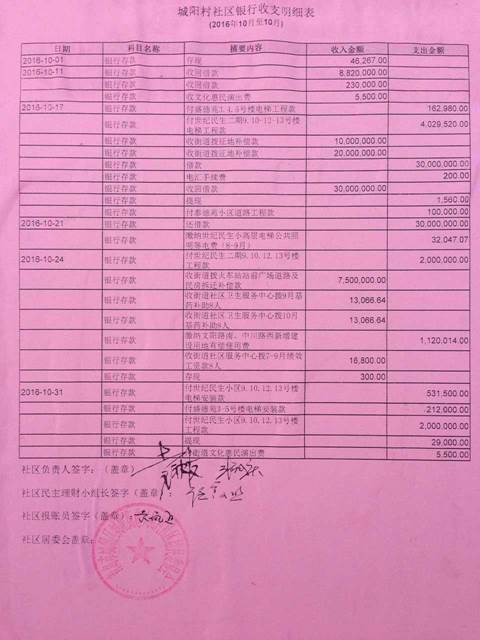 城阳村社区银行收支明细表
(2016年10月至10月)
日期 科目名称 摘要内容 收入金额 支出金额
2016-10-01 银行存款 存现 46,267.00
2016-10-11 银行存款 收回借款 8,820,000.00
银行存款 收回借款 230,000.00
银行存款 收文化惠民演出费 5,500.00
2016-10-17 银行存款 付盛德苑3.4.5号楼电梯工程款 162,980.00
银行存款 付世纪民生二期9.10.12-13号楼
电梯工程款 4,029,520.00
银行存款 收街道拨征地补偿款 10,000,000.00
银行存款 收街道拨征地补偿款 20,000,000.00
银行存款 借款 30,000,000.00
银行存款 电汇手续费 200.00
银行存款 收回借款 30,000,000.00
银行存款 提现 1,560.00
银行存款 付泰德苑小区道路工程款 100,000.00
2016-10-21 银行存款 还借款 30,000,000.00
银行存款 缴纳世纪民生小高层电梯公共照
明等电费（8-9月） 32,047.07
2016-10-24 银行存款 付世纪民生二期9.10.12.13号楼
工程款 2,000,000.00
银行存款 收街道拨火车站站前广场道路及
民房拆迁补偿款 7,500,000.00
银行存款 收街道社区卫生服务中心拨9月基
药补助8人 13,066.64
银行存款 收街道社区卫生服务中心拨10月
基药补助8人 13,066.64
银行存款 缴纳文阳路南、中川路西新增建
设用地有偿使用费 1,120,014.00
银行存款 收街道社区服务中心拨7-9月绩效
工资款8人 16,800.00
银行存款 存现 300.00
2016-10-31 银行存款 付世纪民生小区9.10.12.13号楼
电梯安装款 531,500.00
银行存款 付盛德苑3-5号楼电梯安装款 212,000.00
银行存款 付世纪民生小区9.10.12.13号楼
工程款 2,000,000.00
银行存款 提现 29,000.00
银行存款 街道文化惠民演出费 5,500.00
社区负责人签字：（盖章）
社区民主理财小组长签字（盖章）：
社区报账员签字（盖章）：
社区居委会盖章：